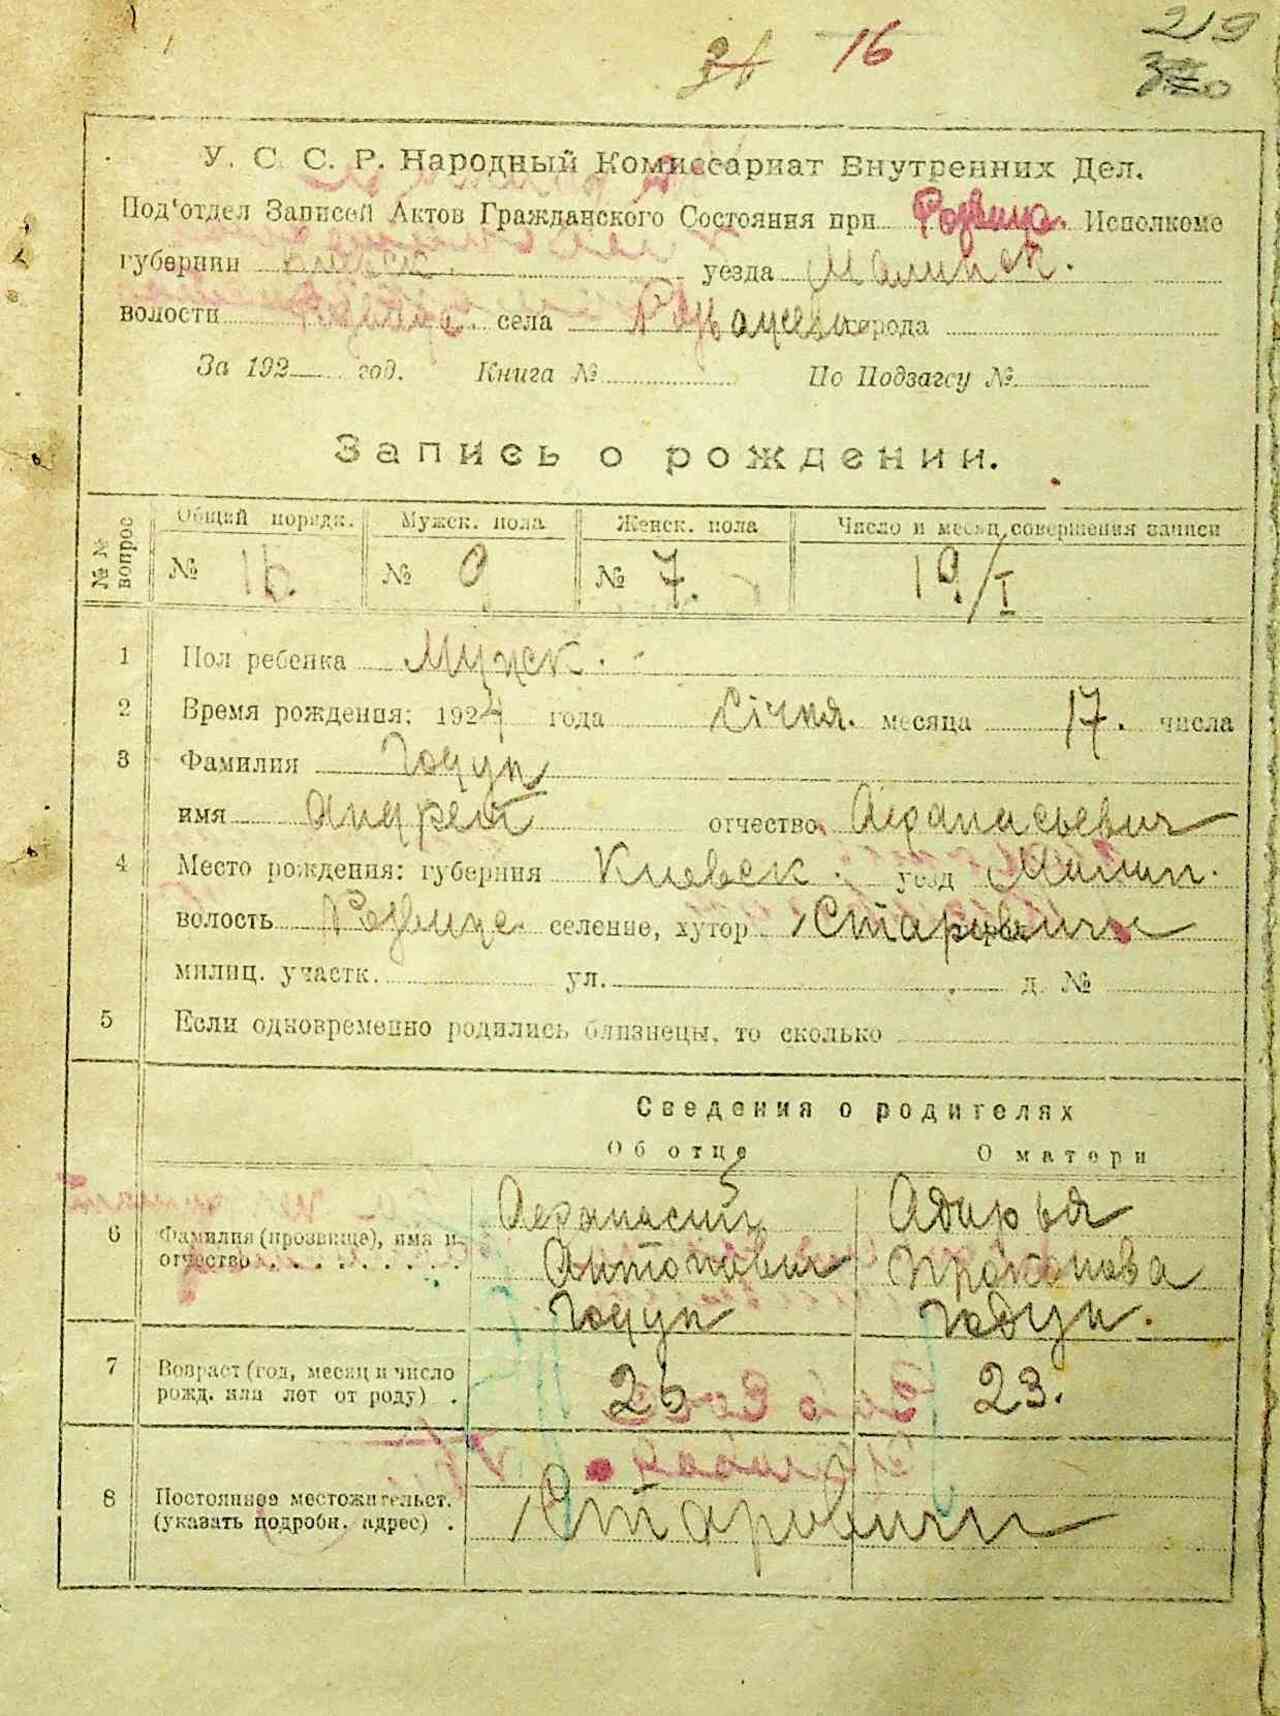 16
219
У. С. С. Р. Народный Комиссариат Внутренних Дел.
Под'отдел Записей Актов Гражданского Состояния при Розваж. Исполкоме
губернии уезда Малинск.
волости села города
За 192 год. Книга № По Подзагсу №
Запись о рождении.
№ № вопрос
Общий порядк. Мужск. пола Женск. пола Число и месяц совершения записи
№ 16. № 9 № 7. 19/I
1 Пол ребенка Мужск.
2 Время рождения: 1924 года Січня. месяца 17. числа
3 Фамилия Годун
имя Андрей отчество Афанасьевич
4 Место рождения: губерния Киевск. уезд Малин.
волость селение, хутор Старовичи
милиц. участк. ул. д. №
5 Если одновременно родились близнецы, то сколько
Сведения о родителях
Об отце О матери
6 Фамилия (прозвище), имя и отчество
Афанасий Антонович Годун
Прокопова Годун.
7 Возраст (год, месяц и число рожд. или лет от роду) . 26 23.
8 Постоянное местожительст. (указать подробн. адрес) . Старовичи